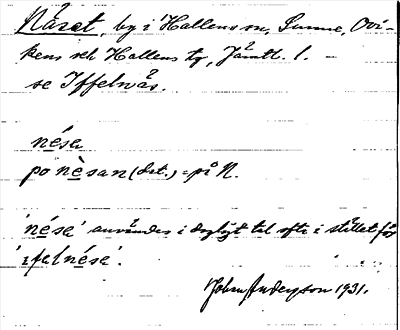 Näset, by i Hallens sn, Sunne, Ovi-
kens och Hallens tg, Jämtl. l. –
se Iffelnäs.
nésa
po nèsan (dat.) = på N.
'nésa' användes i dagligt tal ofta i stället för
'ifelnésa'.
John Anderson 1931.